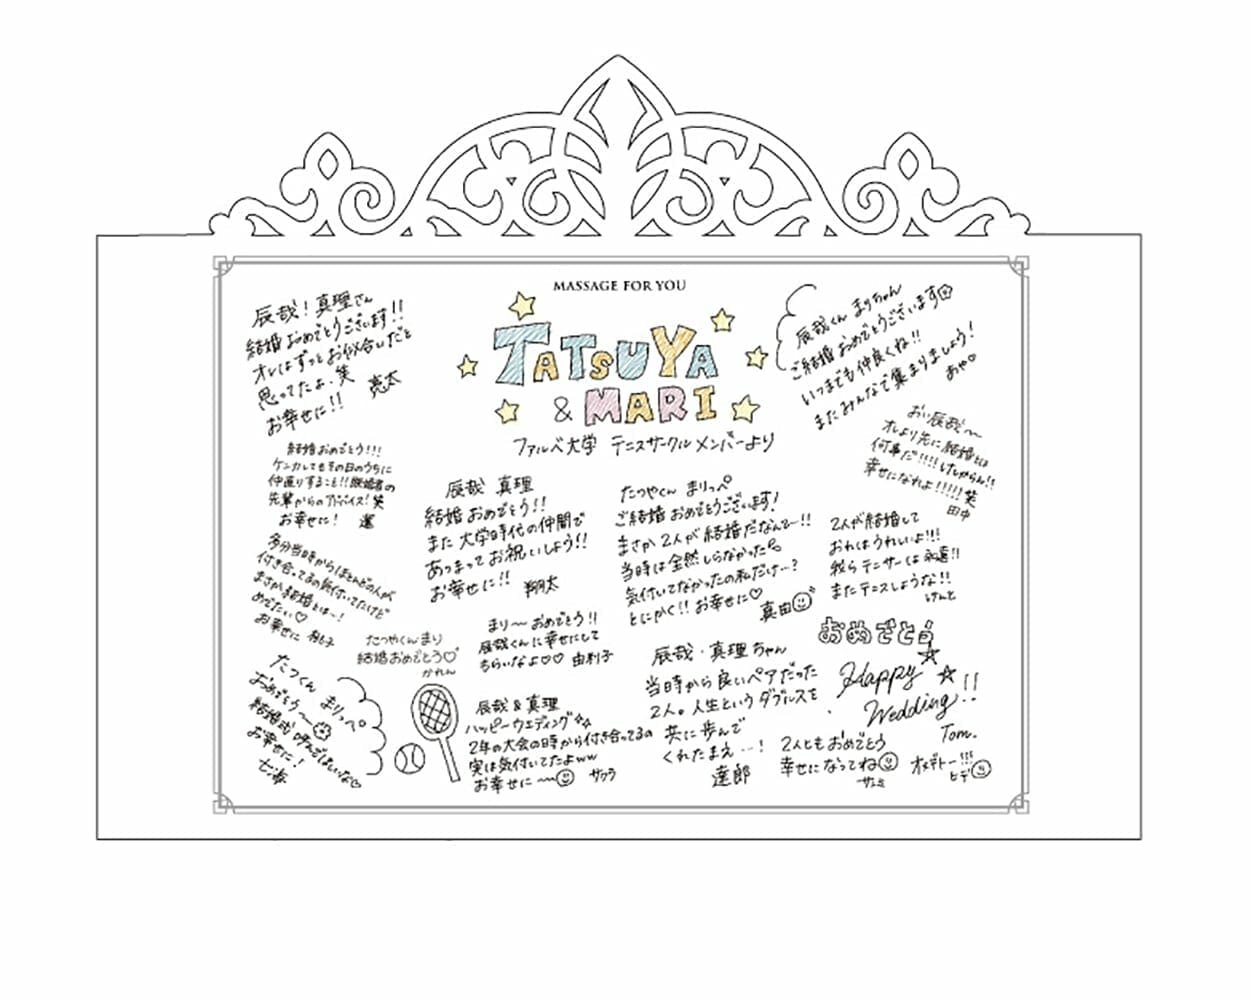 MASSAGE FOR YOU
TATSUYA
& MARI
ファルベ大学 テニスサークルメンバーより
辰哉!真理さん
結婚おめでとうございます!!
オレはずっとお似合いだと
思ってたよ.笑
お幸せに!! 亮太
辰哉くん まりちゃん
ご結婚おめでとうございます
いつまでも仲良くね!!
またみんなで集まりましょう!
あや♡
結婚おめでとう!!!
ケンカしてもその日のうちに
仲直りすること!!既婚者の
先輩からのアドバイス!笑
お幸せに!
おい辰哉〜
オレより先に結婚とは
何事だ!!!!けしからん!!
幸せになれよ!!!!!笑
田中
辰哉 真理
結婚おめでとう!!
また大学時代の仲間で
あつまってお祝いしよう!!
お幸せに!! 翔太
たつやくん まりっぺ
ご結婚おめでとうございます!
まさか2人が結婚だなんて〜!!
当時は全然しらなかった
気付いてなかったの私だけ…?
とにかく!!お幸せに♡
真由
2人が結婚して
おれはうれしいよ!!!
我らテニサーは永遠!!
またテニスしような!!
けんと
多分当時からほとんどの人が
付き合ってるの気付いてたけど
まさか結婚とは〜!
めでたい♡
お幸せに
たつやくんまり
結婚おめでとう♡
かれん
まり〜おめでとう!!
辰哉くんに幸せにして
もらいなよ♡♡ 由利子
おめでとう
Happy
Wedding!!
Tom.
たつくん まりっぺ
おめでとう〜
結婚式 呼んでほしいな♡
お幸せに!
七海
辰哉&真理
ハッピーウエディング
2年の大会の時から付き合ってるの
実は気付いてたよww
お幸せに〜 サクラ
辰哉・真理ちゃん
当時から良いペアだった
2人。人生というダブルスを
共に歩んで
くれたまえ…!
達郎
2人ともおめでとう
幸せになってね
オメデトー!!!
ヒデ